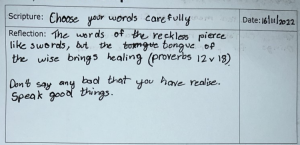 Scripture: Choose your words carefully
Date: 16/11/2022
Reflection: The words of the reckless pierce
like swords, but the tongue of
the wise brings healing (proverbs 12 v 18).
Don't say any bad that you have realise.
Speak good things.